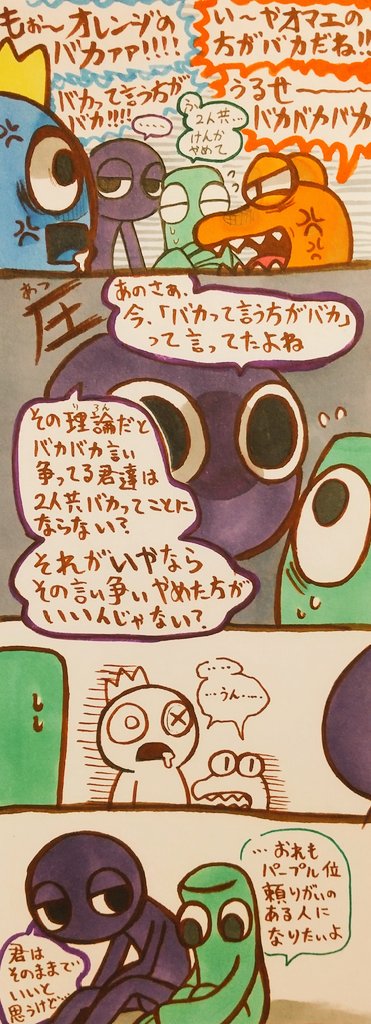 もぉ〜オレンジの
バカァァ!!!!
い〜やオマエの
方がバカだね!!
バカって言う方が
バカ!!!!
うるせーーー
バカバカバカ
……
う゛…
2人共…
けんか
やめて
あのさぁ、
今、「バカって言う方がバカ」
って言ってたよね
あつ
圧
その理論だと
りろん
バカバカ言い
争ってる君達は
2人共バカってことに
ならない?
それがいやなら
その言い争いやめた方が
いいんじゃない?
……
…うん…
…おれも
パープル位
頼りがいの
ある人に
なりたいよ
君は
そのままで
いいと
思うけど…